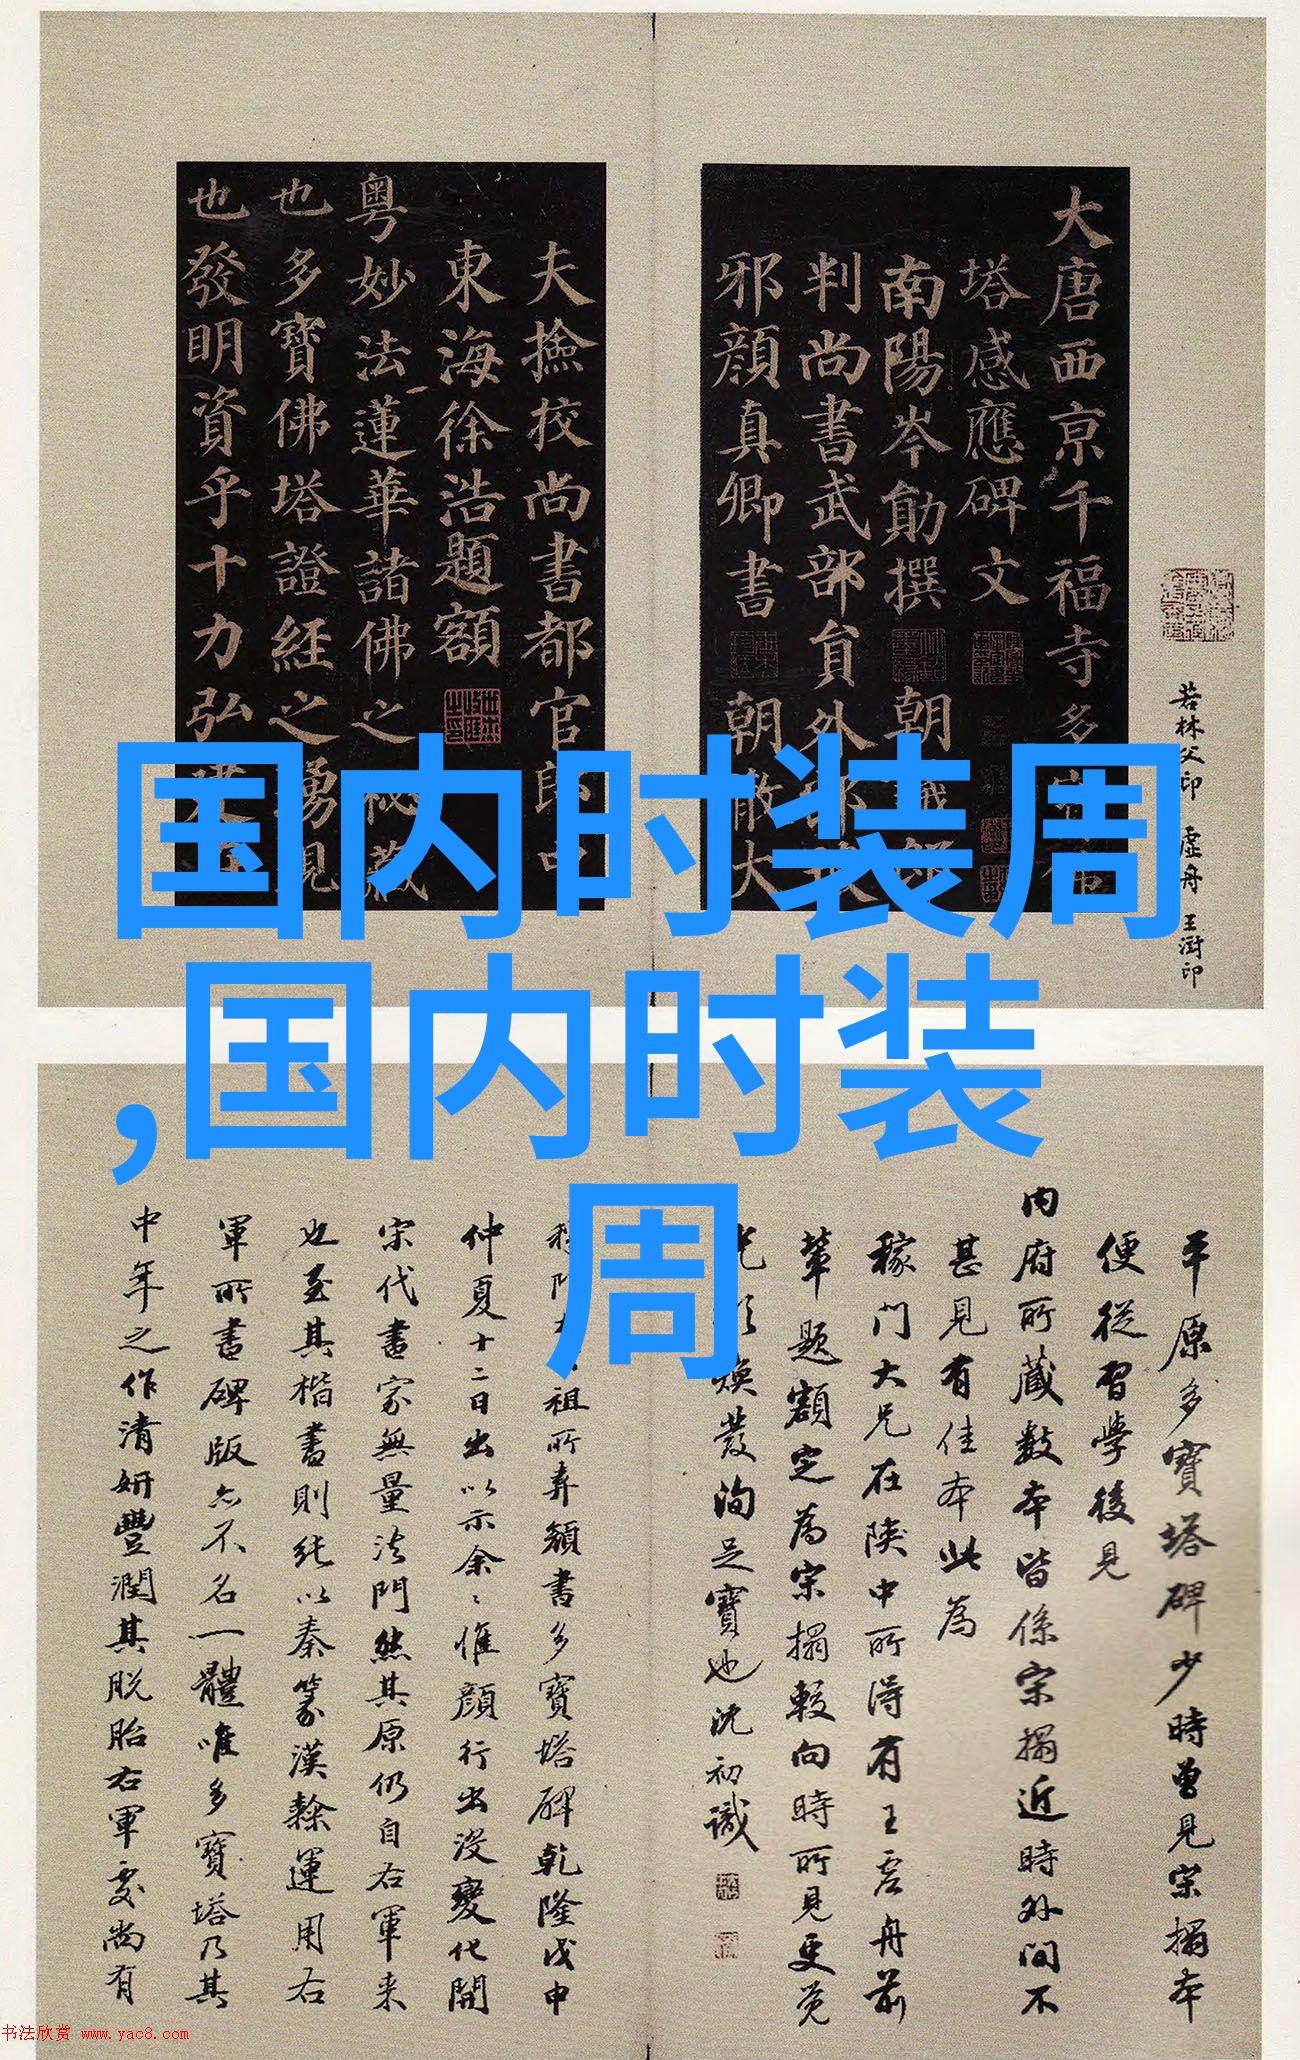 大唐西京千福寺多
塔感應碑文
南陽岑勛撰
朝
判尚書武部員外
邪顏真卿書
朝散大
夫撿挍尚書都官郎中
東海徐浩題額
粵妙法蓮華諸佛之秘藏
也多寶佛塔證經之踴現
也發明資乎十力弘
若林父印
虛舟
王澍印
国内时装周
,国内时装
周
平原多寶塔碑少時曾見宋搨本
便從習學後見
內府所藏數本皆係宋搨近時外間不
甚見有佳本此為
稼門大兄在陝中所得有王虛舟前
輩題額定為宋搨較向時所見更覺
煥發洵足寶也沈初識
祖所弆顏書多寶塔碑乾隆戊申
仲夏十二日出以示余惟顏行出沒變化開
宋代書家無量法門然其原仍自右軍来
也至其楷書則純以秦篆漢隸運用右
軍所書碑版亦不名一體唯多寶塔乃其
中年之作清妍豐潤其脫胎右軍處尚有
书法欣赏 www.yac8.com